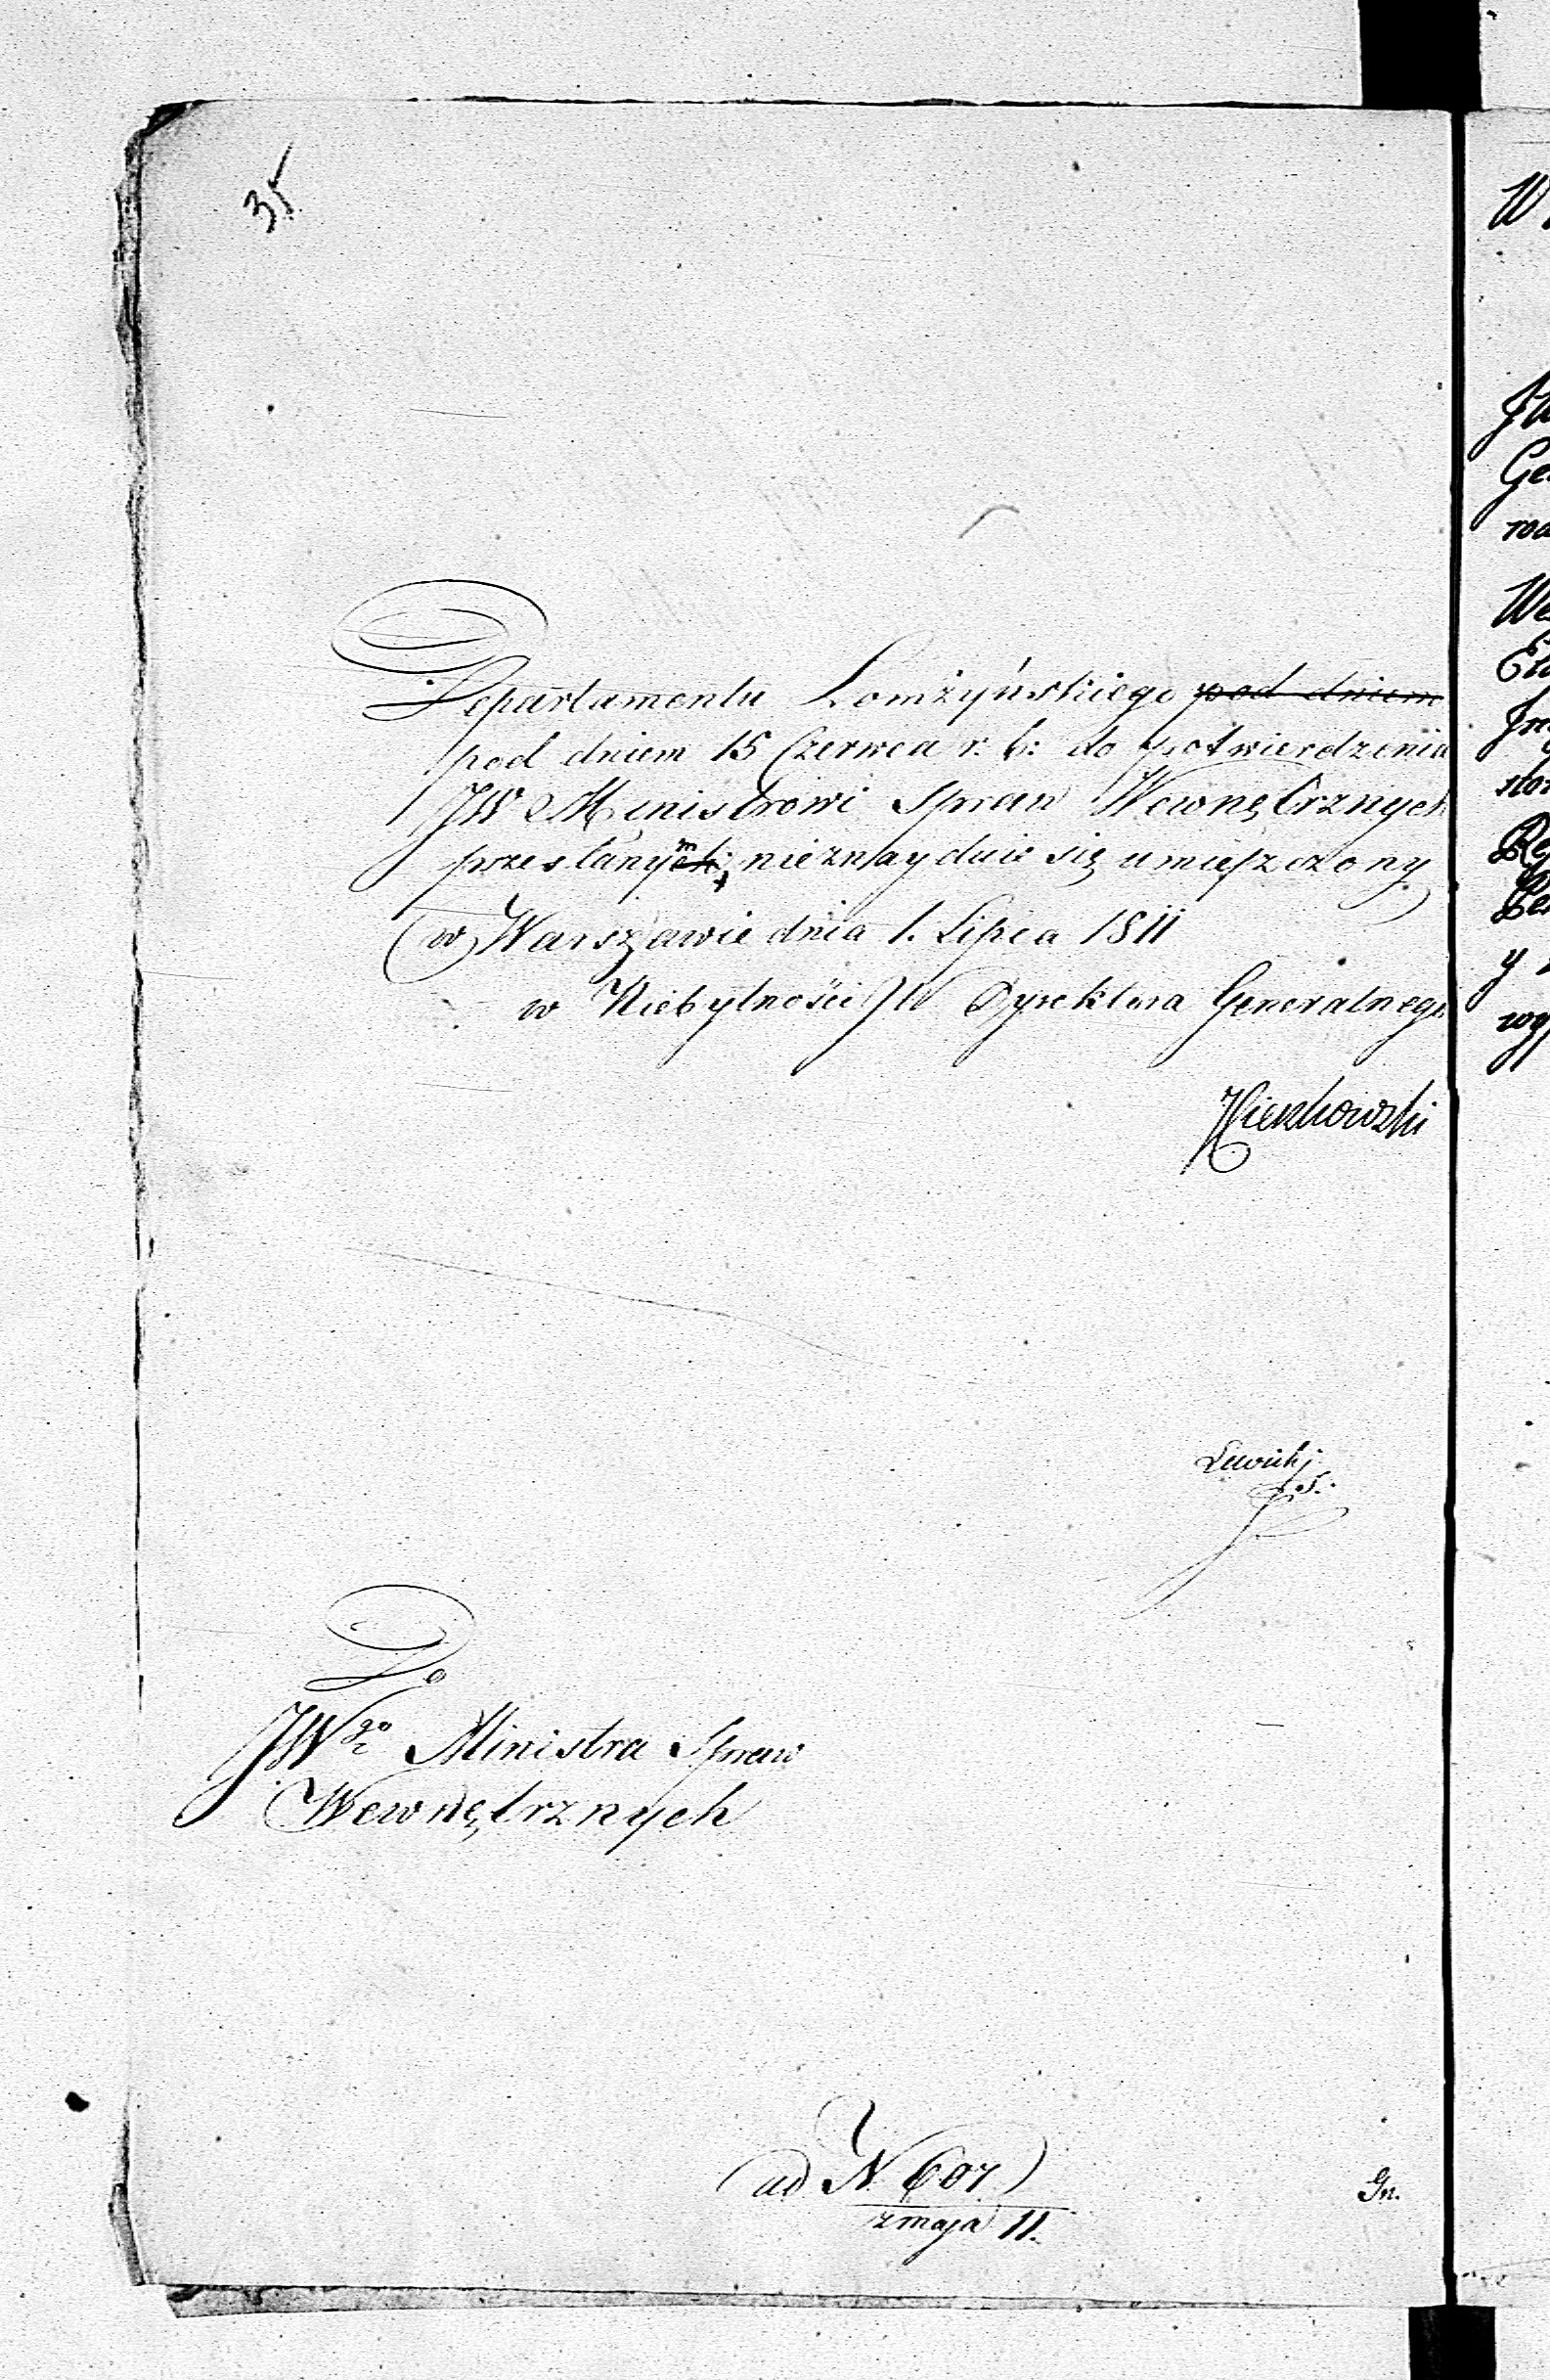 35
Departamentu Łomżyńskiego pod dniem
pod dniem 15 Czerwca r. b: do potwierdzenia
JW Ministrowi Spraw Wewnętrznych
przesłanym, nieznayduie się umieszczony
w Warszawie dnia 1. Lipca 1811
w Niebytności JW Dyrektora Generalnego
Lewicki
S.
Do
JWgo Ministra Spraw
Wewnętrznych
ad N. 607
z maja 11.
Gn.